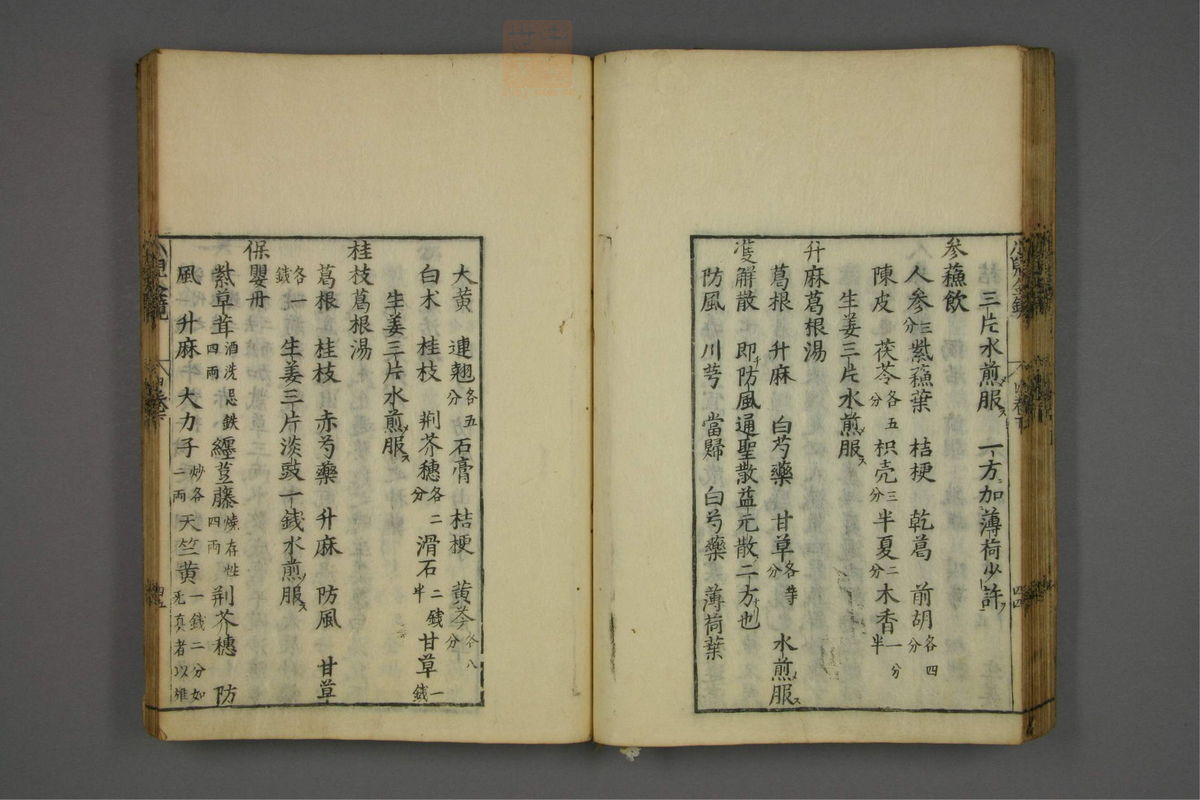 三片水煎服ス 一方加薄荷少許
参蘓飲
人参三分紫蘓葉 桔梗 乾葛 前胡各四分
陳皮 茯苓各五分 枳壳三分半夏二分木香一分半
生姜三片水煎服ス
升麻葛根湯
葛根 升麻 白芍藥 甘草各等分 水煎服ス
雙解散 即防風通聖散益元散二方也
防風 川芎 當歸 白芍藥 薄荷葉
大黄 連翹各五分石膏 桔梗 黄芩各八分
白朮 桂枝 荆芥穗各二分滑石二錢半甘草一錢
生姜三片水煎服ス
桂枝葛根湯
葛根 桂枝 赤芍藥 升麻 防風 甘草
各一錢 生姜三片淡豉一錢水煎服ス
保嬰丹
紫草茸酒洗忌鉄四兩纏荳藤燒存性四兩荆芥穗 防
風 升麻 大力子炒各二兩天竺黄一錢二分如无真者以雄
小兒全鏡
卷下
四四
四五